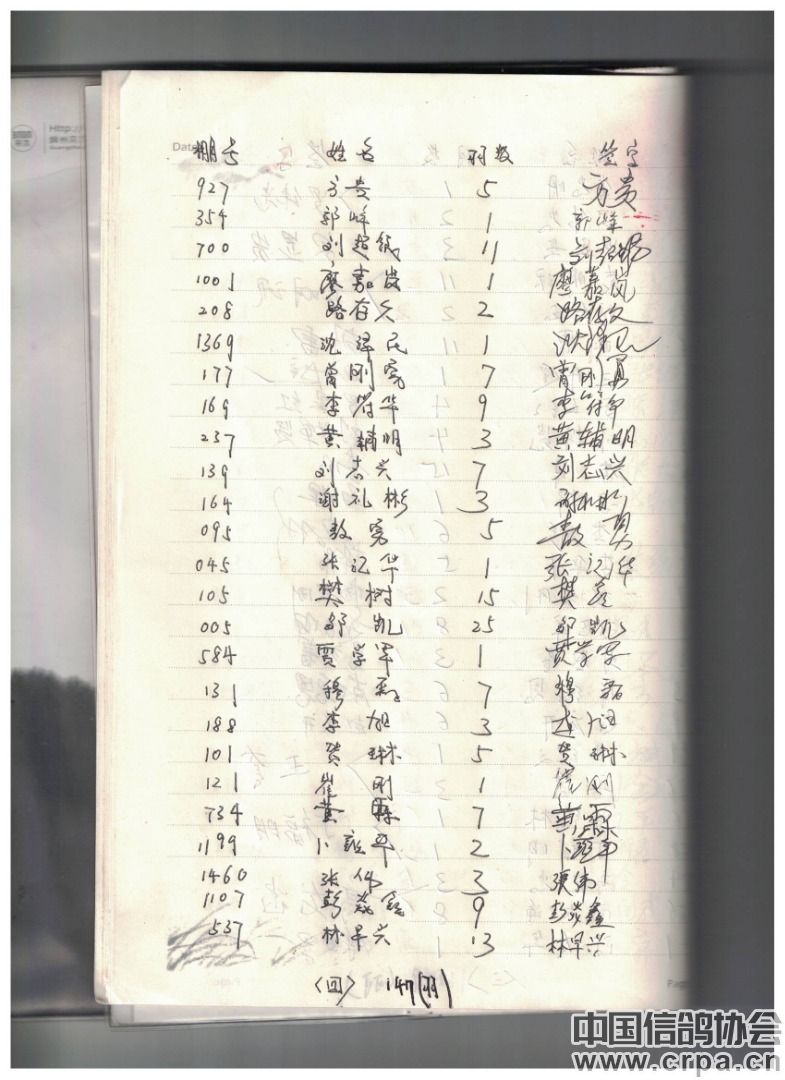 Http://
Date
棚号 姓名 羽数 签字
927 方贵 5 方贵
354 郭峰 1 郭峰
700 刘超 11 刘超
1001 廖嘉 1 廖嘉岚
208 路存久 2 路存久
1369 沈 民 1
177 曾刚 7 曾刚
169 李 华 9 李 华
237 黄辅明 3 黄辅明
139 刘志兴 7 刘志兴
164 谢礼彬 3 谢礼彬
095 敖勇 5 敖勇
045 张记华 1 张记华
105 樊树 15 樊
005 邹凯 25 邹凯
584 贾学军 1 贾学军
131 穆 7 穆
188 李旭 3
101 贺琳 5 贺琳
121 崔刚 1 崔刚
734 黄霖 7 黄霖
1199 卜 平 2 卜 平
1460 张伟 3 张伟
1107 彭焱鑫 9 彭焱鑫
537 林早兴 13 林早兴
(四) 147(羽)
中国信鸽协会
www.crpa.cn